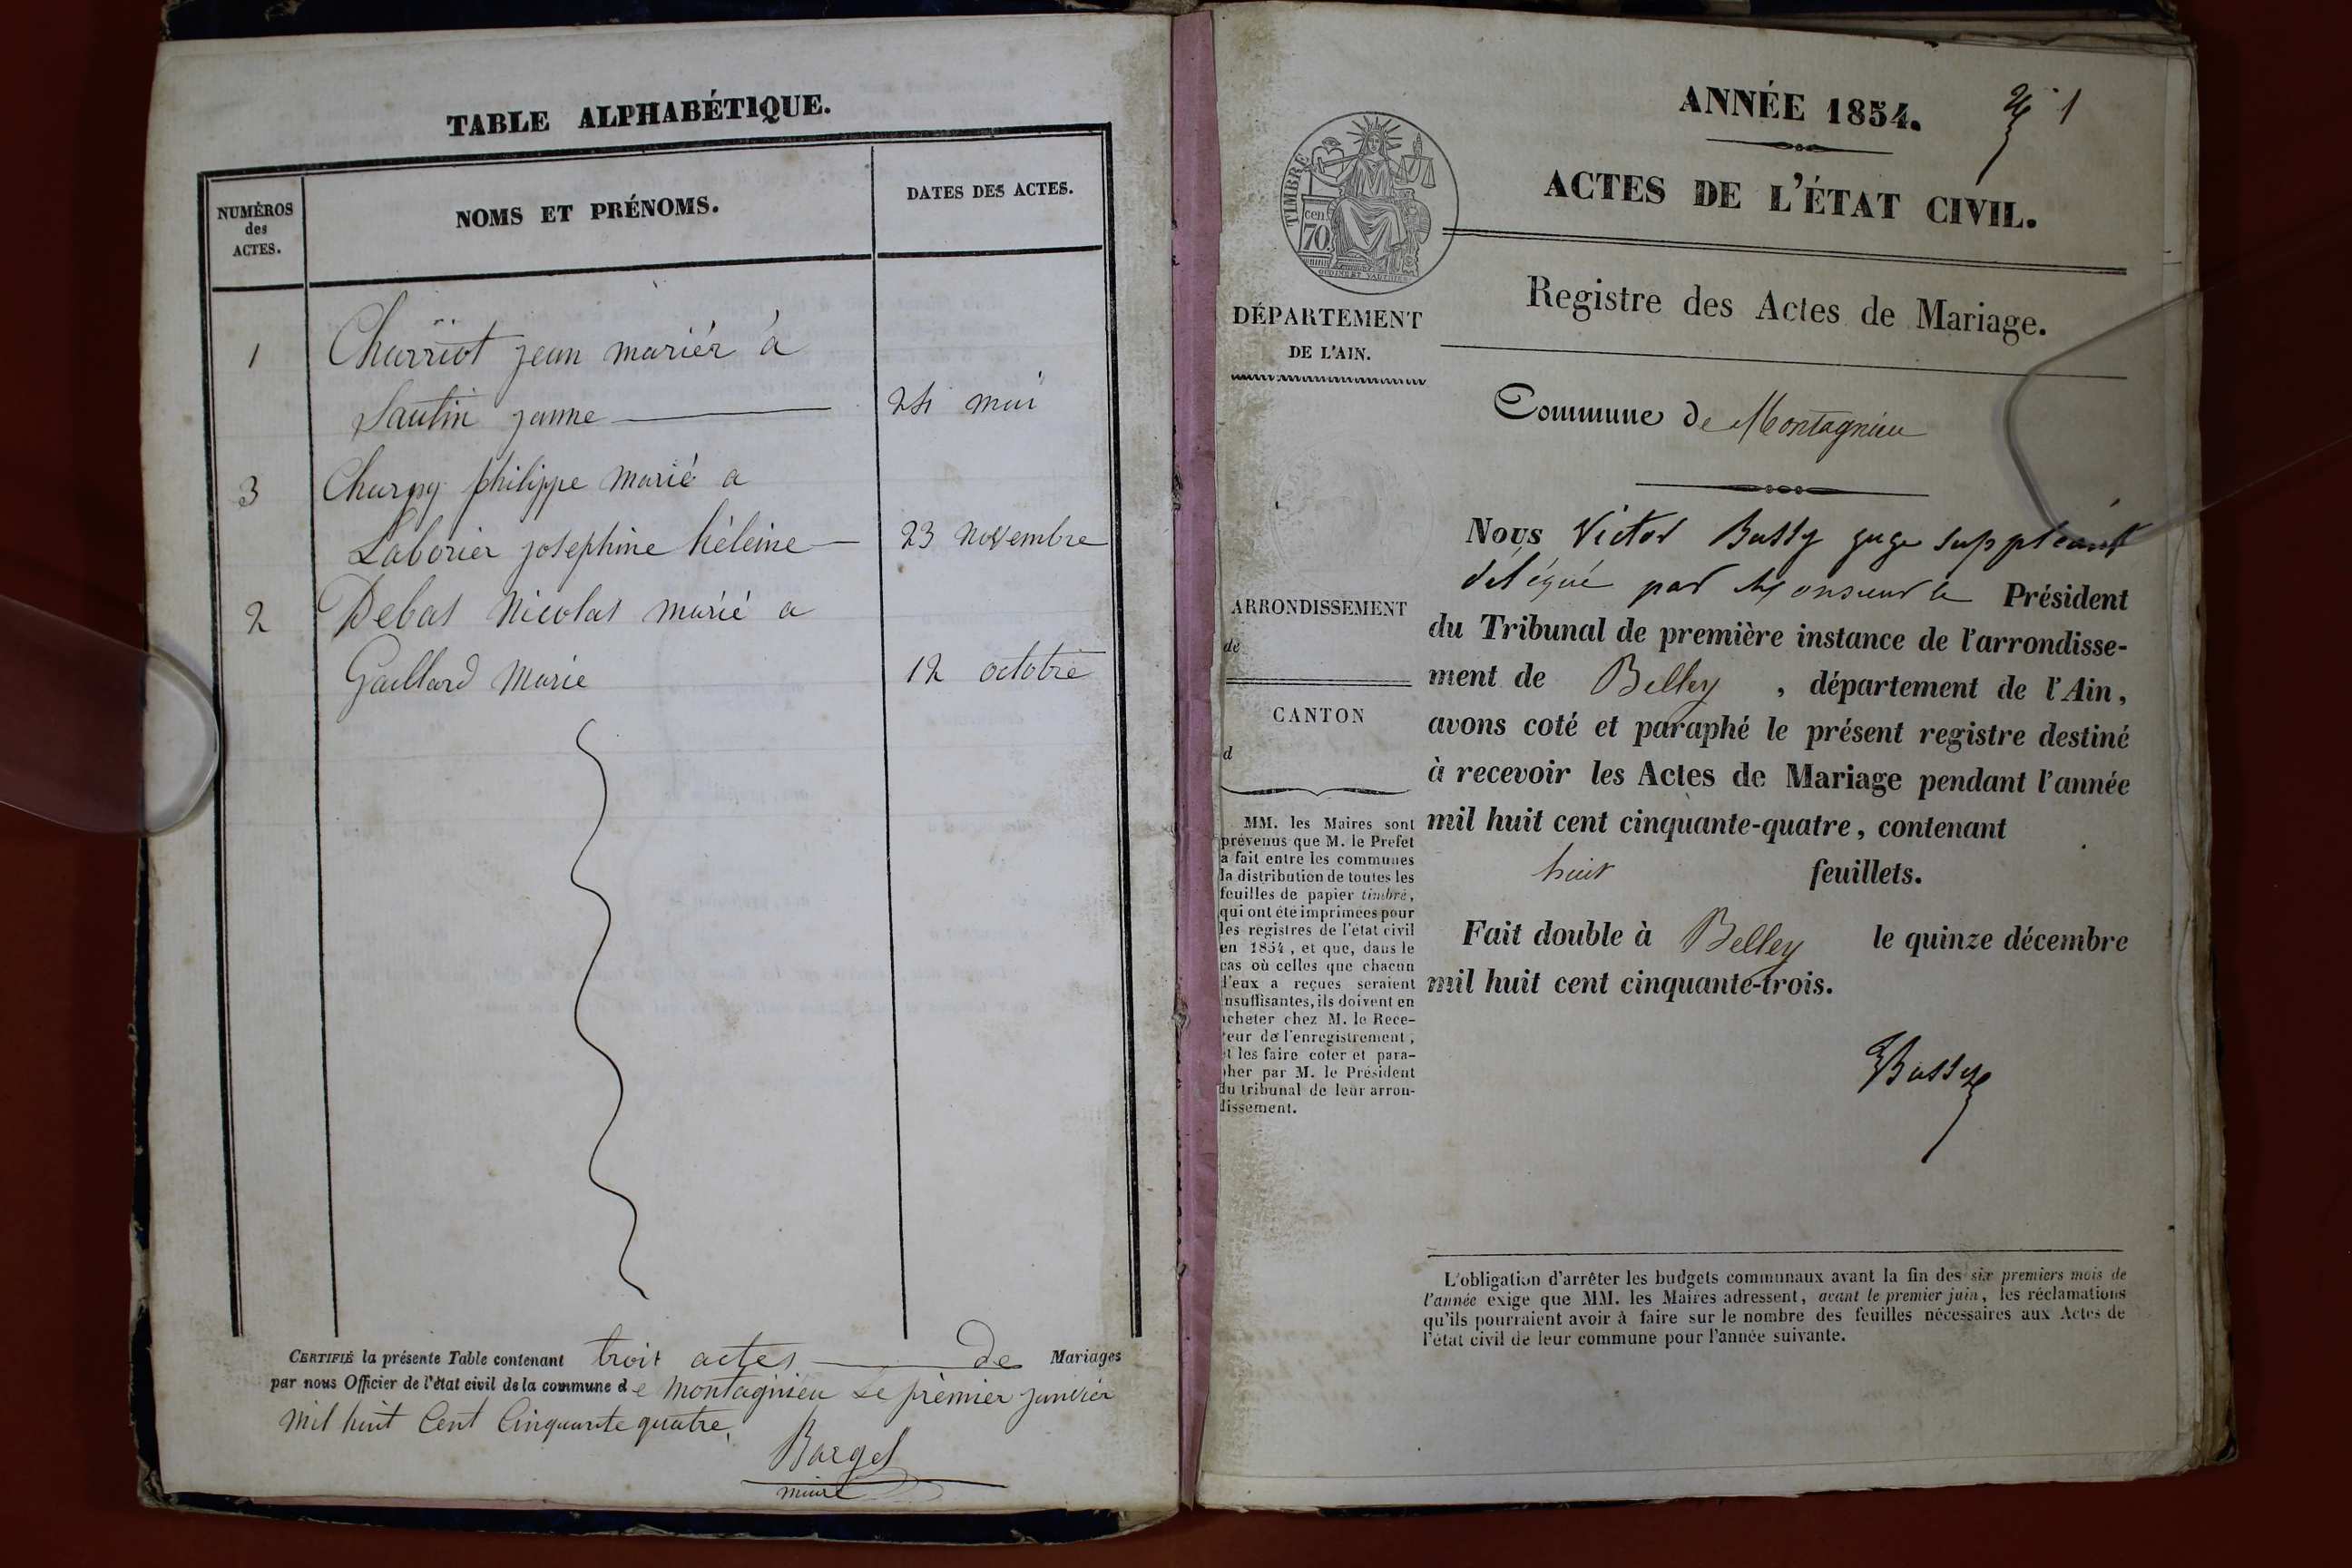 TABLE ALPHABÉTIQUE.
NUMÉROS
des
ACTES.
NOMS ET PRÉNOMS.
DATES DES ACTES.
1 Charriot jean mariér à
Sautin janne 24 mai
3 Charpy philippe marié a
Laborier josephine hèleine 23 novembre
2 Debas Nicolas marié a
Gaillard Marie 12 octobre
CERTIFIÉ la présente Table contenant trois actes de Mariages
par nous Officier de l'état civil de la commune de montagnieu le prèmier janvier
mil huit Cent Cinquante quatre.
Barget
maire
ANNÉE 1854.
1
ACTES DE L'ÉTAT CIVIL.
TIMBRE
cen.
70.
DÉPARTEMENT
DE L'AIN.
Registre des Actes de Mariage.
Commune de Montagnieu
ARRONDISSEMENT
de
CANTON
d
MM. les Maires sont
prévenus que M. le Prefet
a fait entre les communes
la distribution de toutes les
feuilles de papier timbré,
qui ont été imprimées pour
les registres de l'état civil
en 1854, et que, dans le
cas où celles que chacun
d'eux a reçues seraient
insuffisantes, ils doivent en
acheter chez M. le Rece-
veur de l'enregistrement,
et les faire coter et para-
pher par M. le Président
du tribunal de leur arron-
dissement.
Nous Victor Bussy juge suppléant
délégué par Monsieur le Président
du Tribunal de première instance de l'arrondisse-
ment de Belley, département de l'Ain,
avons coté et paraphé le présent registre destiné
à recevoir les Actes de Mariage pendant l'année
mil huit cent cinquante-quatre, contenant
huit feuillets.
Fait double à Belley le quinze décembre
mil huit cent cinquante-trois.
Bussy
L'obligation d'arrêter les budgets communaux avant la fin des six premiers mois de
l'année exige que MM. les Maires adressent, avant le premier juin, les réclamations
qu'ils pourraient avoir à faire sur le nombre des feuilles nécessaires aux Actes de
l'état civil de leur commune pour l'année suivante.